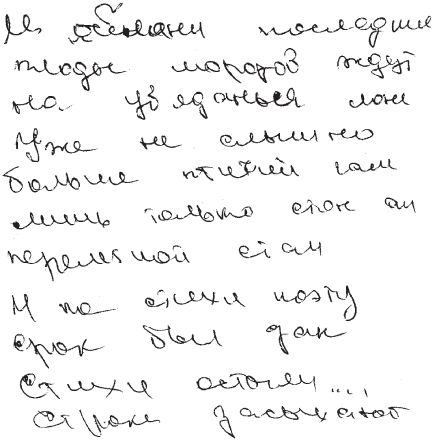 последние
плоды морозов ждут
на увяданья лоне
Уже не слышно
больше птичий гам
лишь только стон
перелётной стаи
И на стихи поэту
срок был дан
стихи остыли....,
строки засыхают